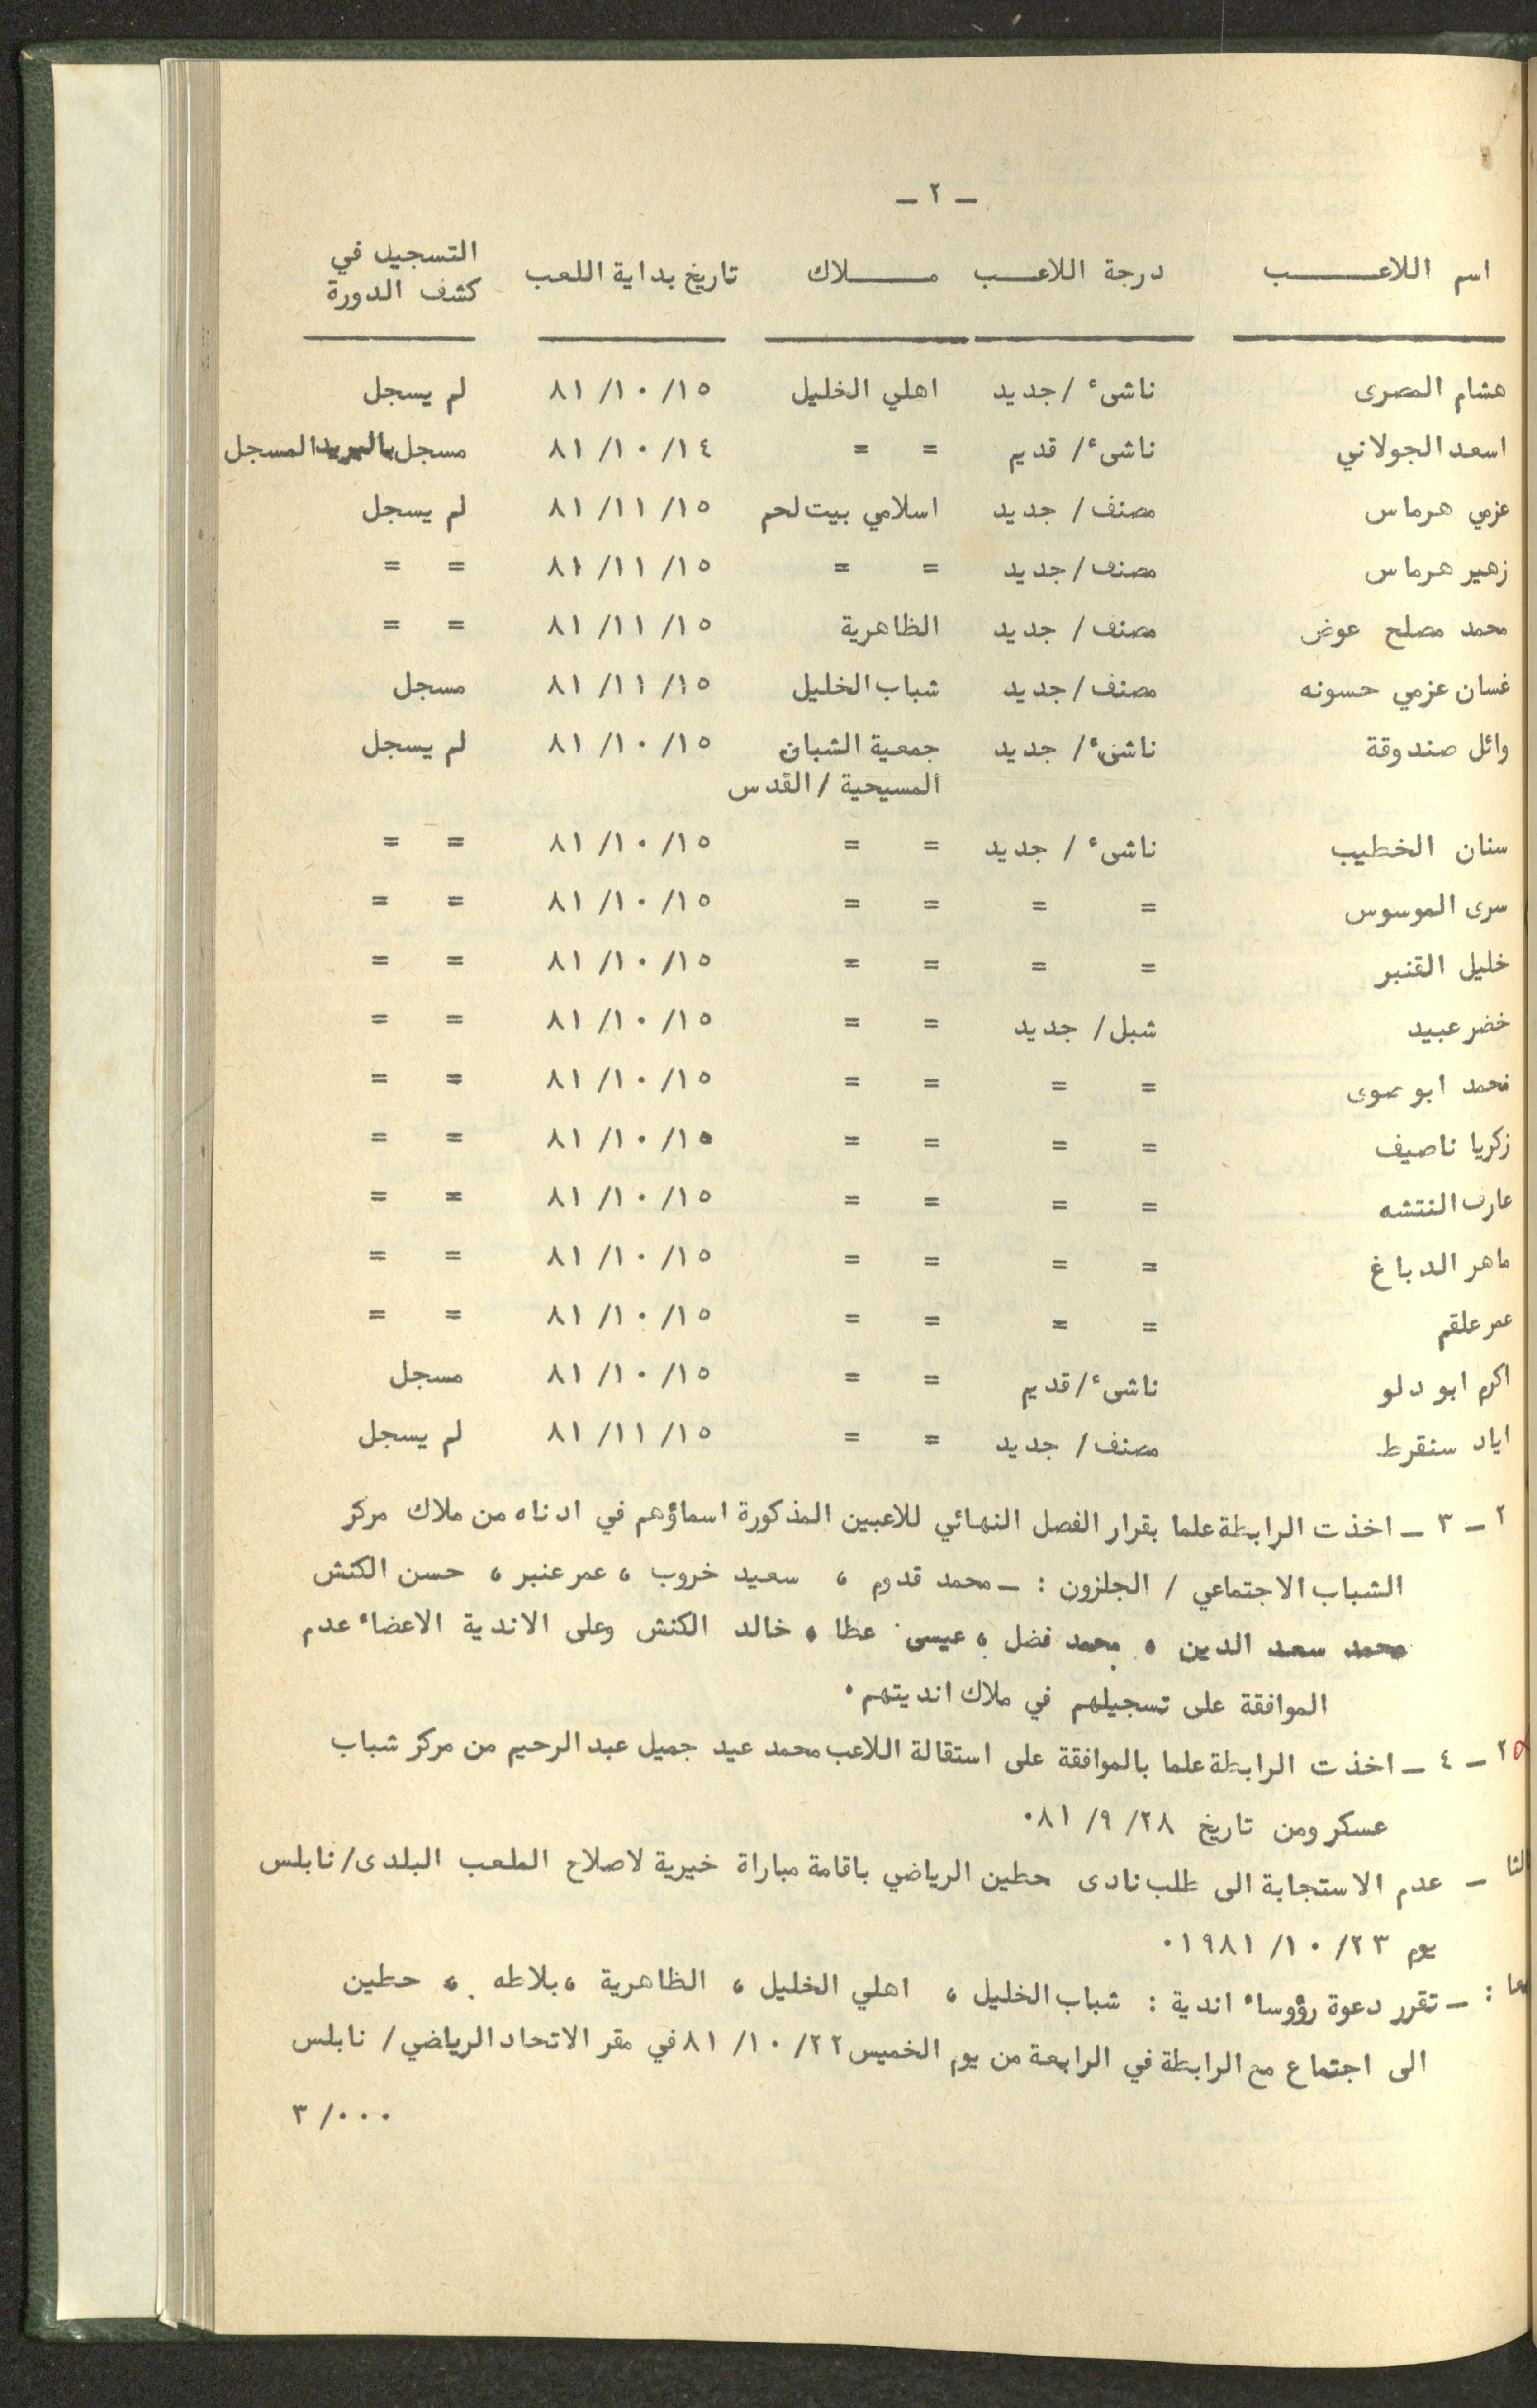 ـ ٢ ـ
اسم اللاعــــــب درجة اللاعــب مــــــلاك تاريخ بداية اللعب التسجيل في
كشف الدورة
هشام المصرى ناشىء /جديد اهلي الخليل ١٥ /١٠ /٨١ لم يسجل
اسعد الجولاني ناشىء/ قديم = = ١٤ /١٠ /٨١ مسجل بالبريد المسجل
عزمي هرماس مصنف/ جديد اسلامي بيت لحم ١٥ /١١ /٨١ لم يسجل
زهير هرماس مصنف/ جديد = = ١٥ /١١ /٨١ = =
محمد مصلح عوض مصنف/ جديد الظاهرية ١٥ /١١ /٨١ = =
غسان عزمي حسونه مصنف/ جديد شباب الخليل ١٥ /١١ /٨١ مسجل
وائل صندوقة ناشىء/ جديد جمعية الشبان ١٥ /١٠ /٨١ لم يسجل
المسيحية /القدس
سنان الخطيب ناشىء / جديد = = ١٥ /١٠ /٨١ = =
سرى الموسوس = = = = ١٥ /١٠ /٨١ = =
خليل القنبر = = = = ١٥ /١٠ /٨١ = =
خضر عبيد شبل/ جديد = = ١٥ /١٠ /٨١ = =
محمد ابو صوى = = = = ١٥ /١٠ /٨١ = =
زكريا ناصيف = = = = ١٥ /١٠ /٨١ = =
عارف النتشه = = = = ١٥ /١٠ /٨١ = =
ماهر الدباغ = = = = ١٥ /١٠ /٨١ = =
عمر علقم = = = = ١٥ /١٠ /٨١ = =
اكرم ابو دلو ناشىء/قديم = = ١٥ /١٠ /٨١ مسجل
اياد سنقرط مصنف/ جديد = = ١٥ /١١ /٨١ لم يسجل
٢ ـ ٣ ـ اخذت الرابطة علما بقرار الفصل النهائي للاعبين المذكورة اسماؤهم في ادناه من ملاك مركز
الشباب الاجتماعي / الجلزون : ـ محمد قدوم ، سعيد خروب ، عمر عنبر ، حسن الكنش
محمد سعد الدين ، محمد فضل ، عيسى عطا ، خالد الكنش وعلى الاندية الاعضاء عدم
الموافقة على تسجيلهم في ملاك انديتهم .
٢ ـ ٤ ـ اخذت الرابطة علما بالموافقة على استقالة اللاعب محمد عيد جميل عبد الرحيم من مركز شباب
عسكر ومن تاريخ ٢٨ /٩ /٨١ .
لثا ـ عدم الاستجابة الى طلب نادى حطين الرياضي باقامة مباراة خيرية لاصلاح الملعب البلدى/ نابلس
يوم ٢٣ /١٠ /١٩٨١ .
عا : ـ تقرر دعوة رؤوساء اندية : شباب الخليل ، اهلي الخليل ، الظاهرية ، بلاطه ، حطين
الى اجتماع مع الرابطة في الرابعة من يوم الخميس ٢٢ /١٠ /٨١ في مقر الاتحاد الرياضي/ نابلس
٠٠٠ /٣